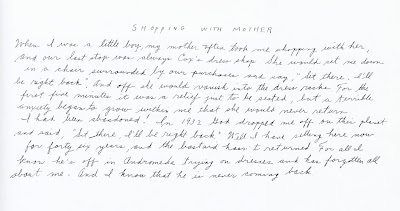 SHOPPING WITH MOTHER
When I was a little boy, my mother often took me shopping with her,
and our last stop was always Cox's dress shop. She would set me down
in a chair surrounded by our purchases and say, "Sit there, I'll
be right back," and off she would vanish into the dress racks. For the
first five minutes it was a relief just to be seated, but a terrible
anxiety began to grow within me that she would never return.
I had been abandoned! In 1932 God dropped me off on this planet
and said, "Sit there, I'll be right back." Well I have sitting here now
for forty six years, and the bastard hasn't returned. For all I
know he's off in Andromeda trying on dresses and has forgotten all
about me. And I know that he is never coming back